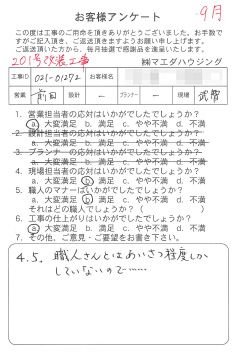 お客様アンケート
9月
この度は工事のご用命を頂きありがとうございました。お手数で
すがご記入頂き、ご返送頂きますようお願い申し上げます。
ご返送頂いた方から、毎月抽選で感謝品を進呈いたします。
201号改装工事
㈱マエダハウジング
工事ID 021-01272 お客様名
営業 前田 設計 － プランナー － 現場 武智
1. 営業担当者の応対はいかがでしたでしょうか?
a. 大変満足 b. 満足 c. やや不満 d. 不満
2. 設計担当者の応対はいかがでしたでしょうか?
a. 大変満足 b. 満足 c. やや不満 d. 不満
3. プランナーの応対はいかがでしたでしょうか?
a. 大変満足 b. 満足 c. やや不満 d. 不満
4. 現場担当者の応対はいかがでしたでしょうか?
a. 大変満足 b. 満足 c. やや不満 d. 不満
5. 職人のマナーはいかがでしたでしょうか?
a. 大変満足 b. 満足 c. やや不満 d. 不満
それはどの職人でしょうか? ( )
6. 工事の仕上がりはいかがでしたでしょうか?
a. 大変満足 b. 満足 c. やや不満 d. 不満
7. その他、ご意見・ご要望をお書き下さい。
4.5. 職人さんとはあいさつ程度しか
していないので……